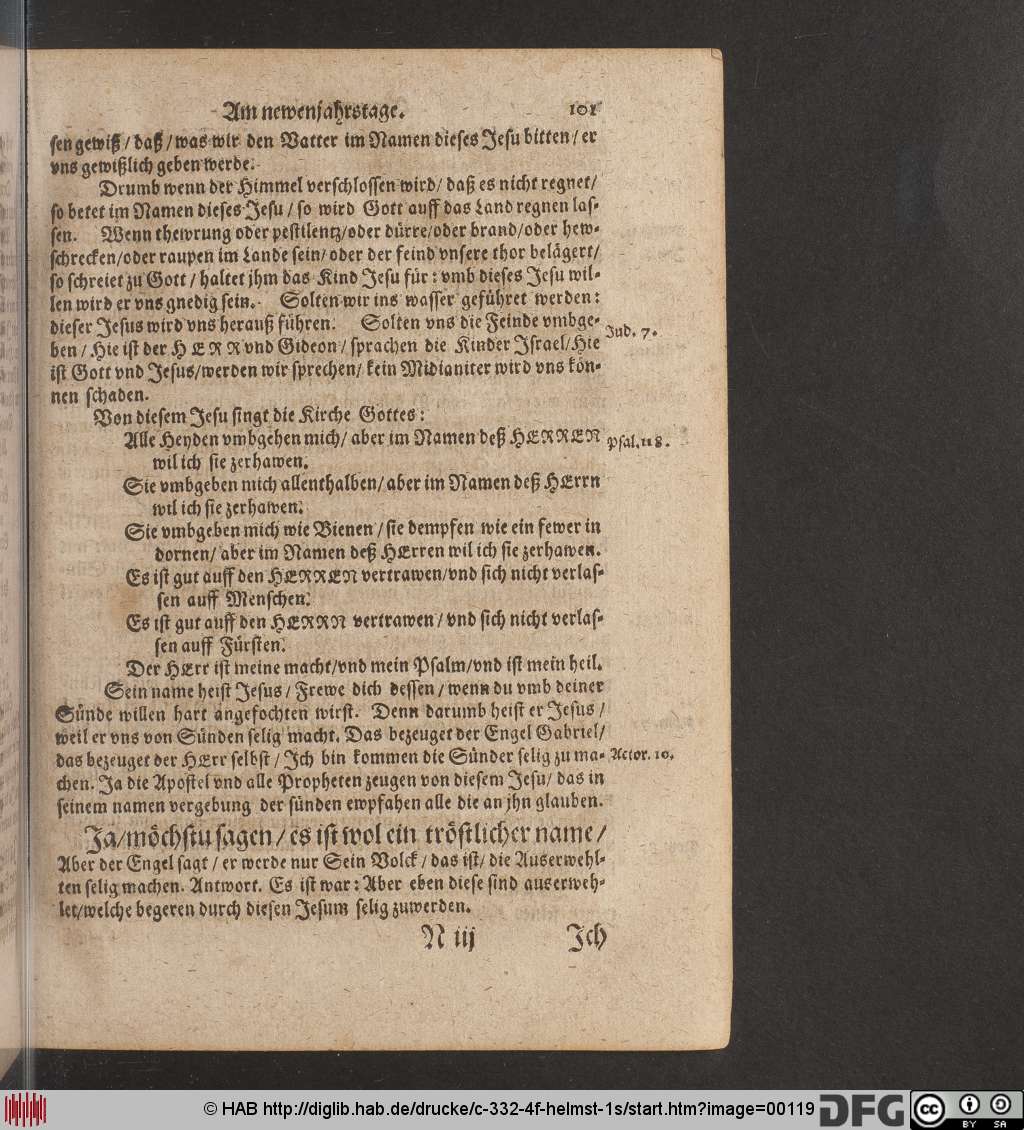 Am newenjahrstage. 101
sen gewiß / daß / was wir den Vatter im Namen dieses Jesu bitten / er
vns gewißlich geben werde.
Drumb wenn der Himmel verschlossen wird / daß es nicht regnet /
so betet im Namen dieses Jesu / so wird Gott auff das Land regnen las-
sen. Wenn thewrung oder pestilentz / oder dürre / oder brand / oder hew-
schrecken / oder raupen im Lande sein / oder der feind vnsere thor belägert /
so schreiet zu Gott / haltet jhm das Kind Jesu für : vmb dieses Jesu wil-
len wird er vns gnedig sein. Solten wir ins wasser geführet werden :
dieser Jesus wird vns herauß führen. Solten vns die Feinde vmbge- Jud. 7.
ben / Hie ist der HERR vnd Gideon / sprachen die Kinder Israel / Hie
ist Gott vnd Jesus / werden wir sprechen / kein Midianiter wird vns kön-
nen schaden.
Von diesem Jesu singt die Kirche Gottes :
Alle Heyden vmbgehen mich / aber im Namen deß HERREN Psal. 118.
wil ich sie zerhawen.
Sie vmbgeben mich allenthalben / aber im Namen deß HErrn
wil ich sie zerhawen.
Sie vmbgeben mich wie Bienen / sie dempfen wie ein fewer in
dornen / aber im Namen deß HErren wil ich sie zerhawen.
Es ist gut auff den HERREN vertrawen / vnd sich nicht verlas-
sen auff Menschen.
Es ist gut auff den HERRN vertrawen / vnd sich nicht verlas-
sen auff Fürsten.
Der HErr ist meine macht / vnd mein Psalm / vnd ist mein heil.
Sein name heist Jesus / Frewe dich dessen / wenn du vmb deiner
Sünde willen hart angefochten wirst. Denn darumb heist er Jesus /
weil er vns von Sünden selig macht. Das bezeuget der Engel Gabriel /
das bezeuget der HErr selbst / Ich bin kommen die Sünder selig zu ma- Actor. 10.
chen. Ja die Apostel vnd alle Propheten zeugen von diesem Jesu / das in
seinem namen vergebung der sünden empfahen alle die an jhn glauben.
Ja / möchstu sagen / es ist wol ein tröstlicher name /
Aber der Engel sagt / er werde nur Sein Volck / das ist / die Auserwehl-
ten selig machen. Antwort. Es ist war : Aber eben diese sind auserweh-
let / welche begeren durch diesen Jesum selig zuwerden.
N iij Ich
© HAB http://diglib.hab.de/drucke/c-332-4f-helmst-1s/start.htm?image=00119 DFG cc BY SA